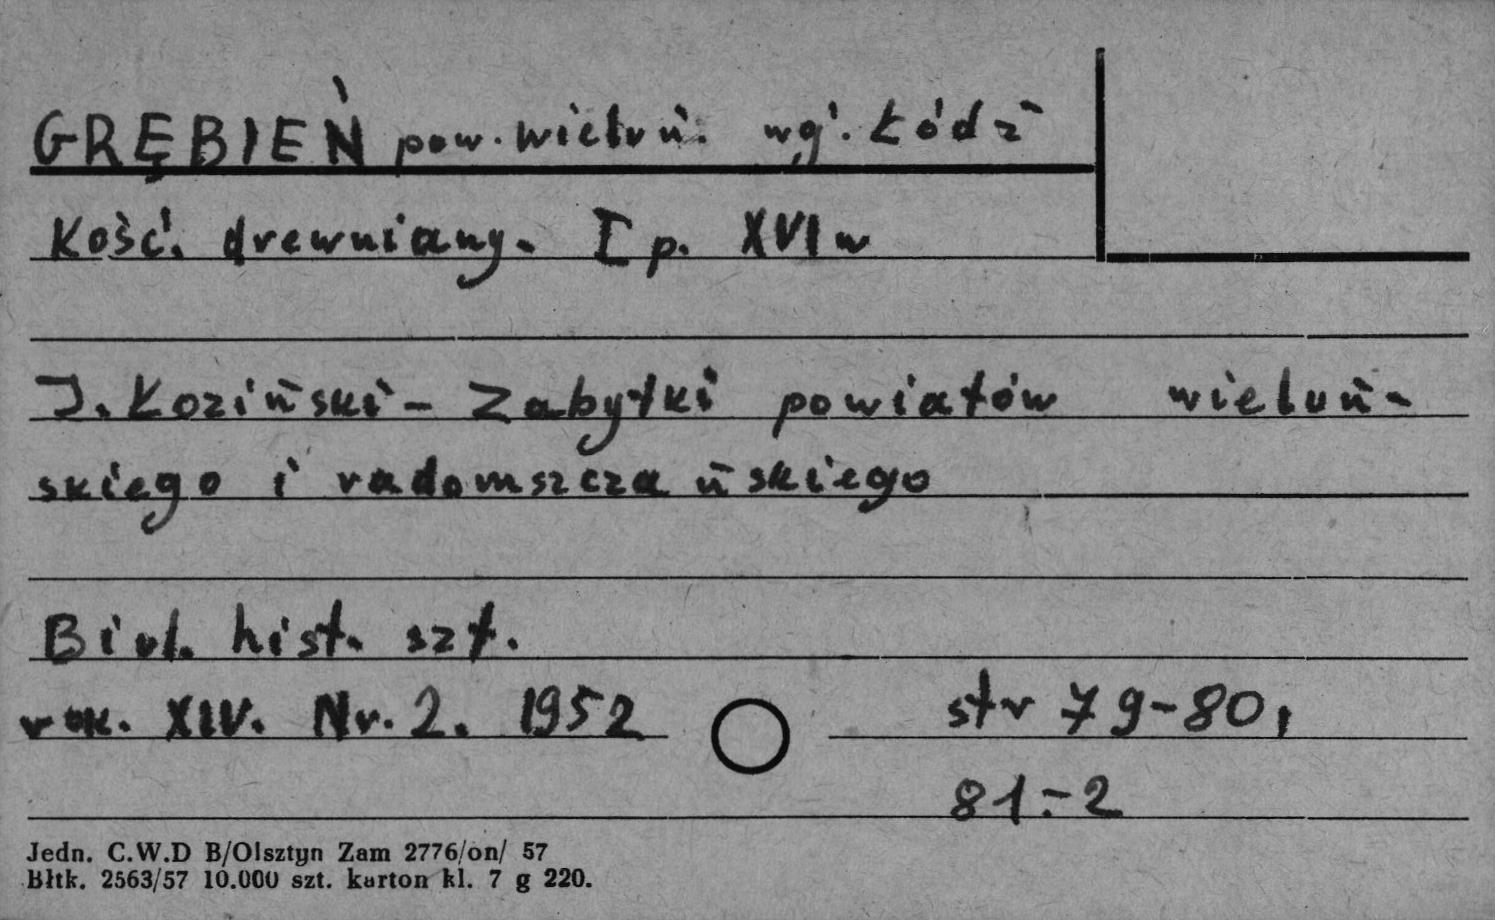 GRĘBIEŃ pow. wieluń. wg. Łódź
Kość. drewniany. I p. XVI w
J. Łoziński - Zabytki powiatów wieluń-
skiego i radomszczańskiego
Biul. hist. szt.
rok. XIV. Nr. 2. 1952 str 79-80,
81-2
Jedn. C.W.D B/Olsztyn Zam 2776/on/ 57
Błtk. 2563/57 10.000 szt. karton kl. 7 g 220.